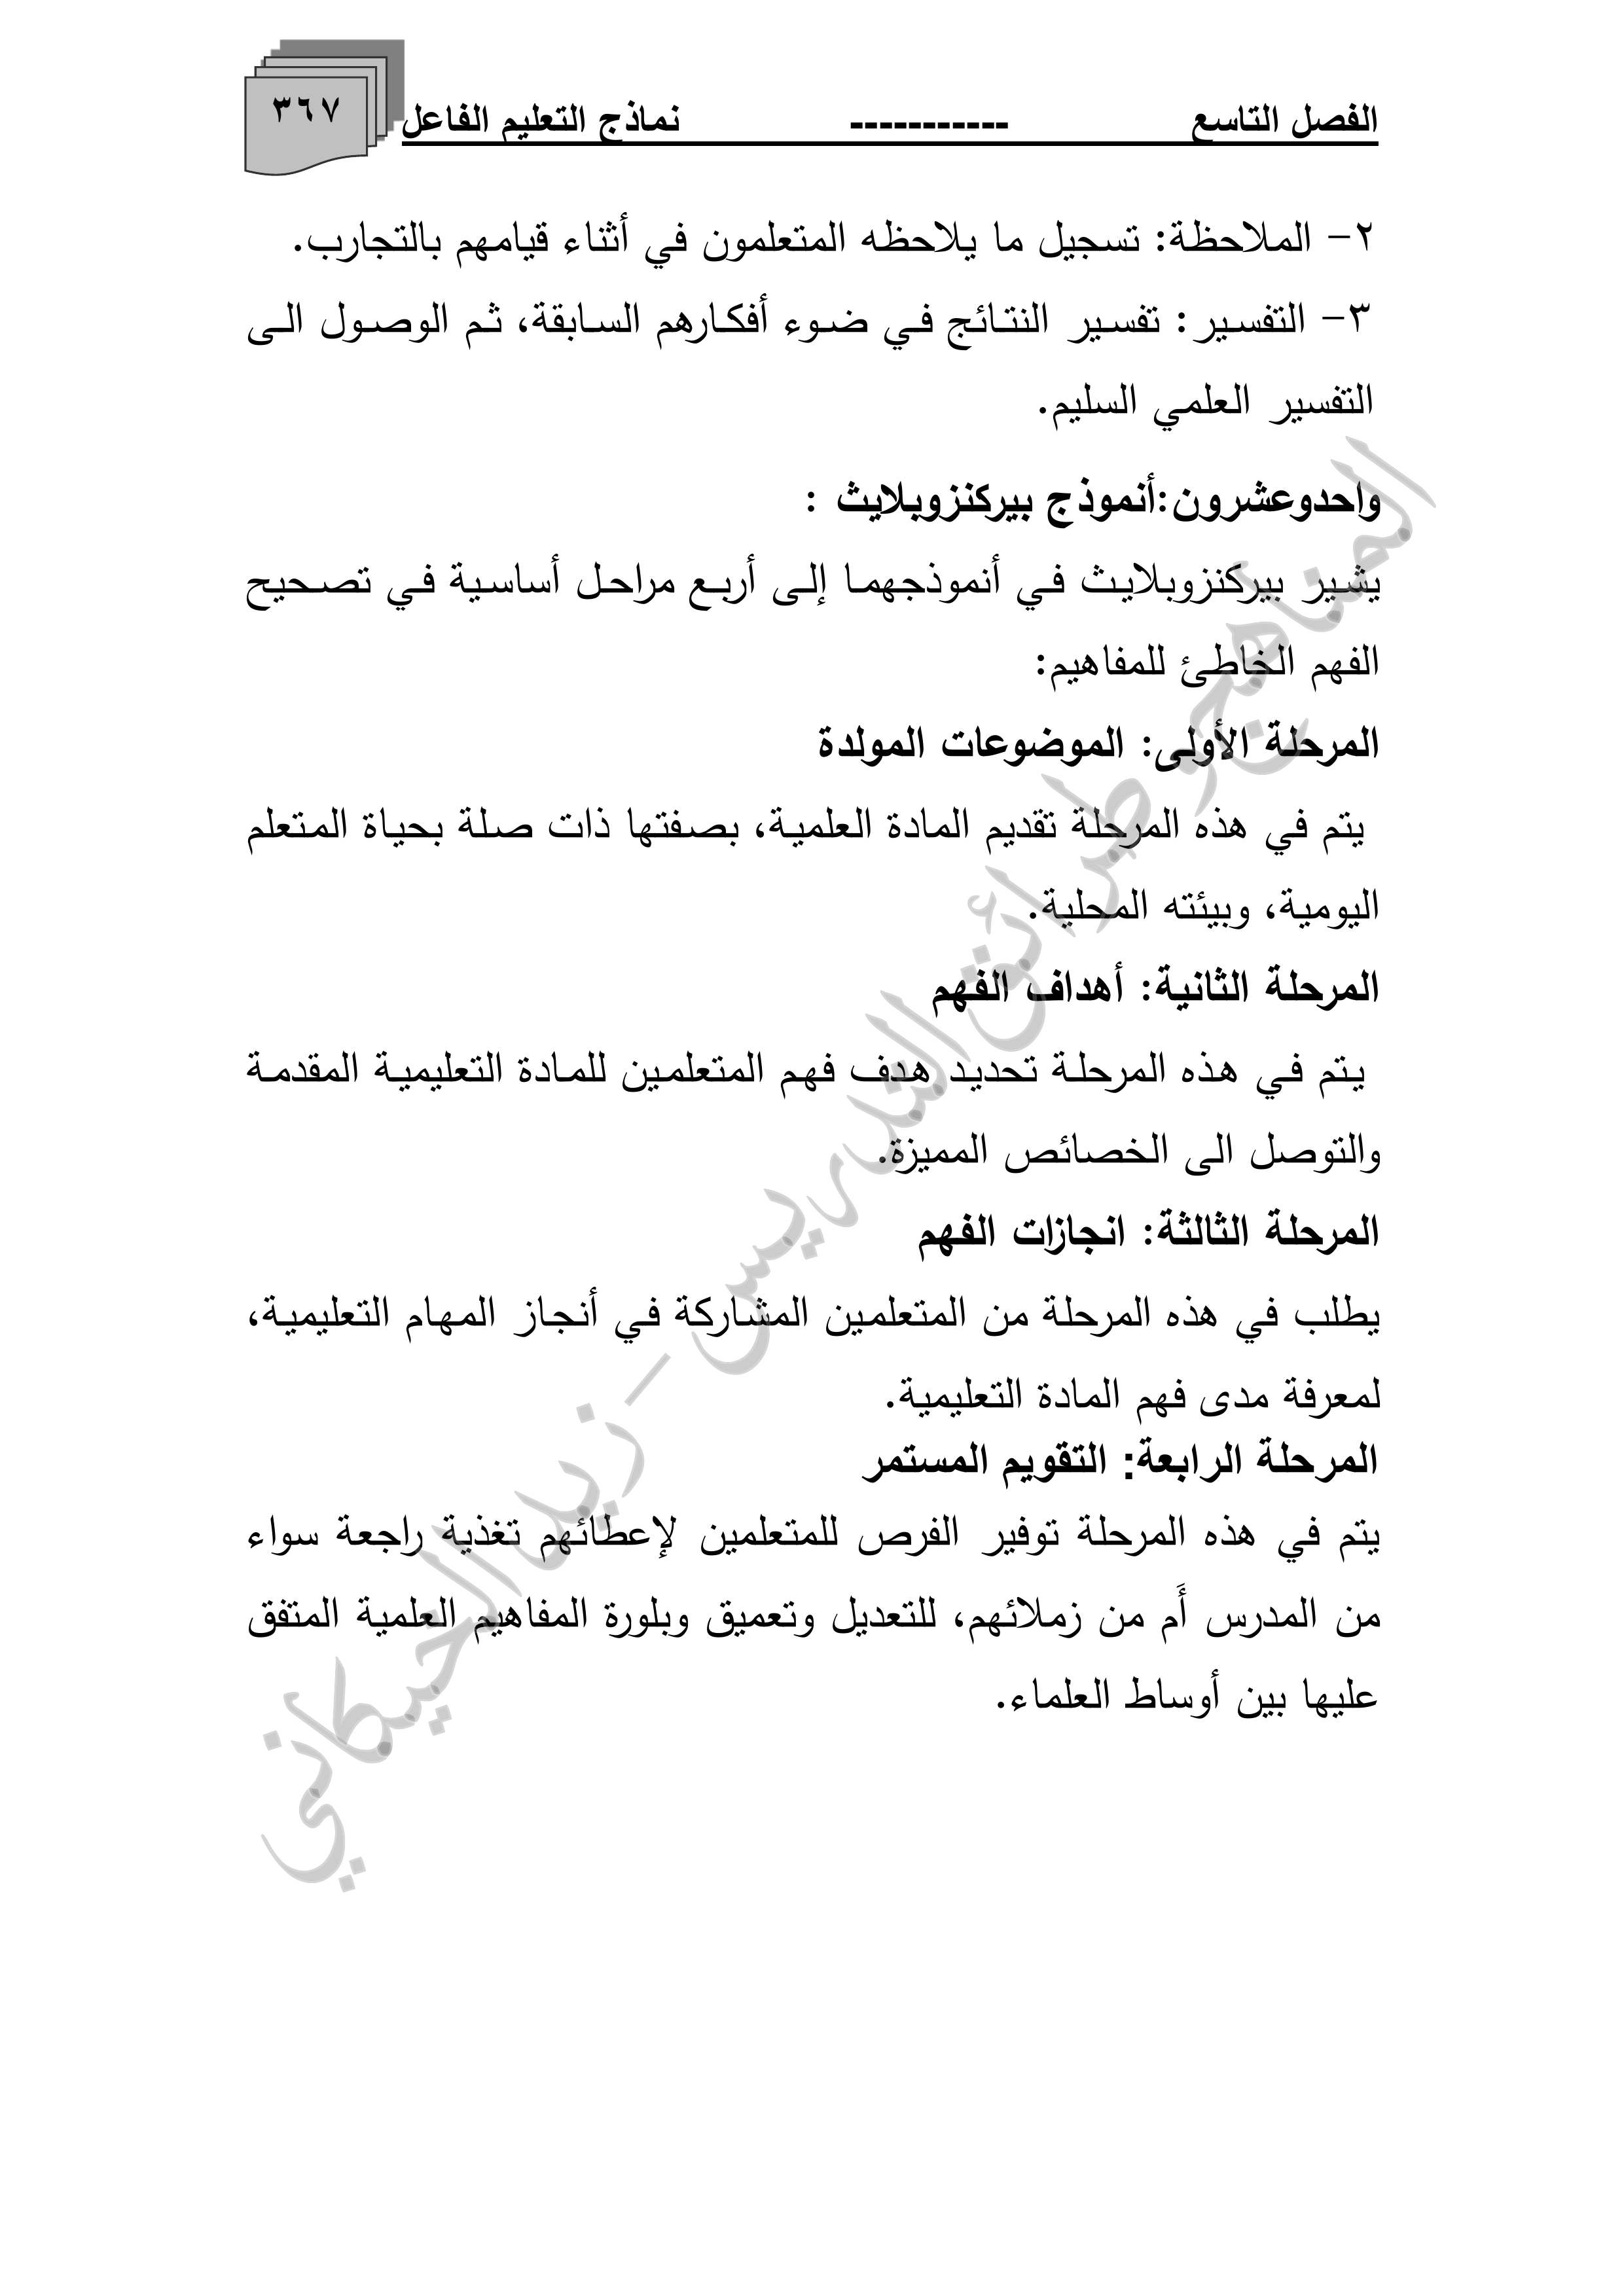 الفصل التاسع ----------- نماذج التعليم الفاعل
٣٦٧
٢- الملاحظة: تسجيل ما يلاحظه المتعلمون في أثناء قيامهم بالتجارب.
٣- التفسير: تفسير النتائج في ضوء أفكارهم السابقة، ثم الوصول الى
التفسير العلمي السليم.
واحدوعشرون:أنموذج بيركنزوبلايث :
يشير بيركنزوبلايث في أنموذجهما إلى أربع مراحل أساسية في تصحيح
الفهم الخاطئ للمفاهيم:
المرحلة الأولى: الموضوعات المولدة
يتم في هذه المرحلة تقديم المادة العلمية، بصفتها ذات صلة بحياة المتعلم
اليومية، وبيئته المحلية.
المرحلة الثانية: أهداف الفهم
يتم في هذه المرحلة تحديد هدف فهم المتعلمين للمادة التعليمية المقدمة
والتوصل الى الخصائص المميزة.
المرحلة الثالثة: انجازات الفهم
يطلب في هذه المرحلة من المتعلمين المشاركة في أنجاز المهام التعليمية،
لمعرفة مدى فهم المادة التعليمية.
المرحلة الرابعة: التقويم المستمر
يتم في هذه المرحلة توفير الفرص للمتعلمين لإعطائهم تغذية راجعة سواء
من المدرس أَم من زملائهم، للتعديل وتعميق وبلورة المفاهيم العلمية المتفق
عليها بين أوساط العلماء.
المناهج وطرائق التدريس - زيد الخيكاني